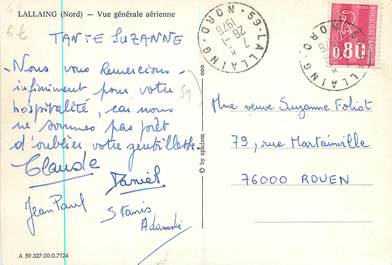 LALLAING (Nord) — Vue générale aérienne
6€
TANTE SUZANNE
Nous vous remercions
infiniment pour votre
hospitalité, car nous
ne sommes pas prêt
d'oublier votre gentillesse.
Claude
Daniel
Jean Paul
Stanis
Adamski
59
A 59.327.00.0.7124
© by spadem
59-LALLAING-NORD
26-7
1976
RÉPUBLIQUE FRANÇAISE
0,80
59-LALLAING-NORD
Mme veuve Suzanne Foliot
79, rue Martainville
76000 ROUEN